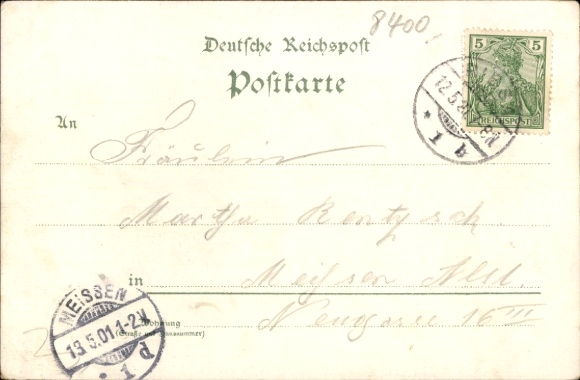 8400
Deutsche Reichspost
Postkarte
5 5
REICHSPOST
12.5.
1 q
An
Fräulein
Martha Rentzsch
in Meißen Alst.
Wohnung
(Straße und Hausnummer)
Neugasse 16 III
MEISSEN
13.5.01.1-2N.
1 d